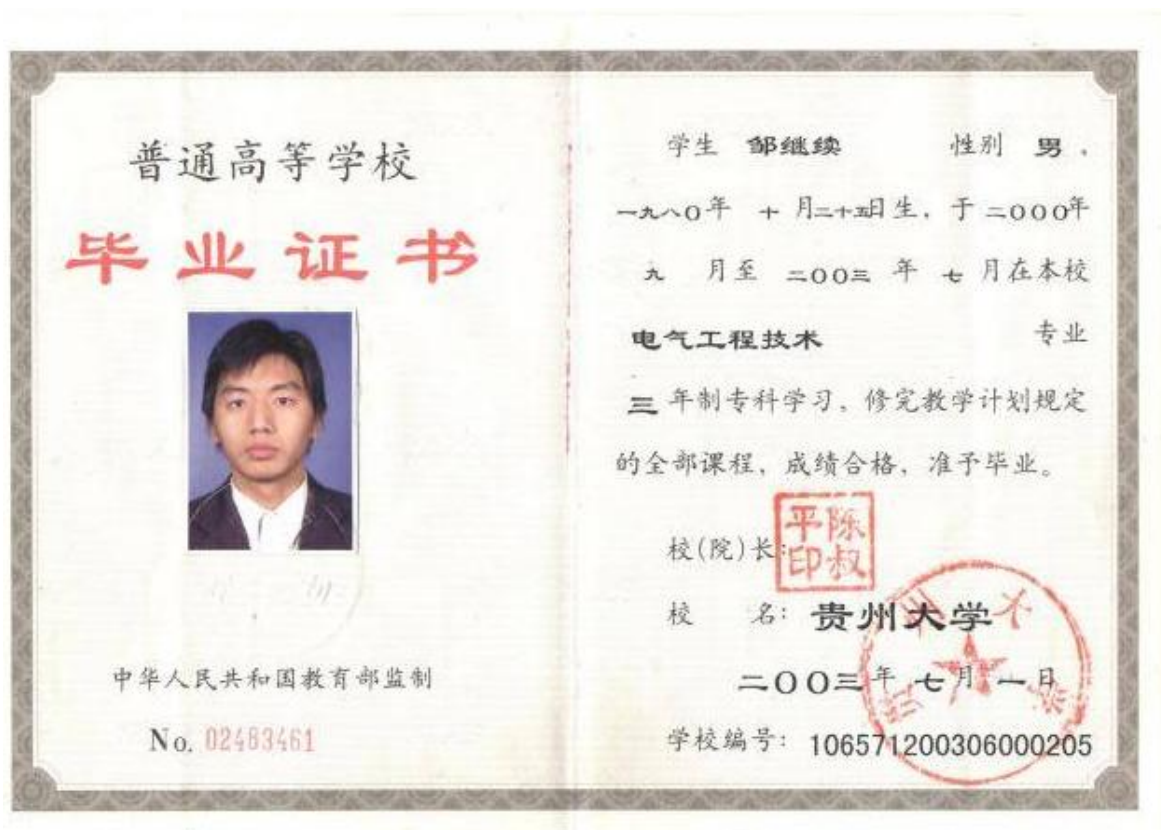 普通高等学校
毕业证书
中华人民共和国教育部监制
No. 02483461
学生 邹继续 性别 男,
一九八〇年 十 月二十五日生, 于 二〇〇〇年
九 月至 二〇〇三 年 七 月在本校
电气工程技术 专业
三 年制专科学习, 修完教学计划规定
的全部课程, 成绩合格, 准予毕业。
校(院)长:
陈叔平印
校 名: 贵州大学
二〇〇三年 七月 一日
学校编号: 106571200306000205